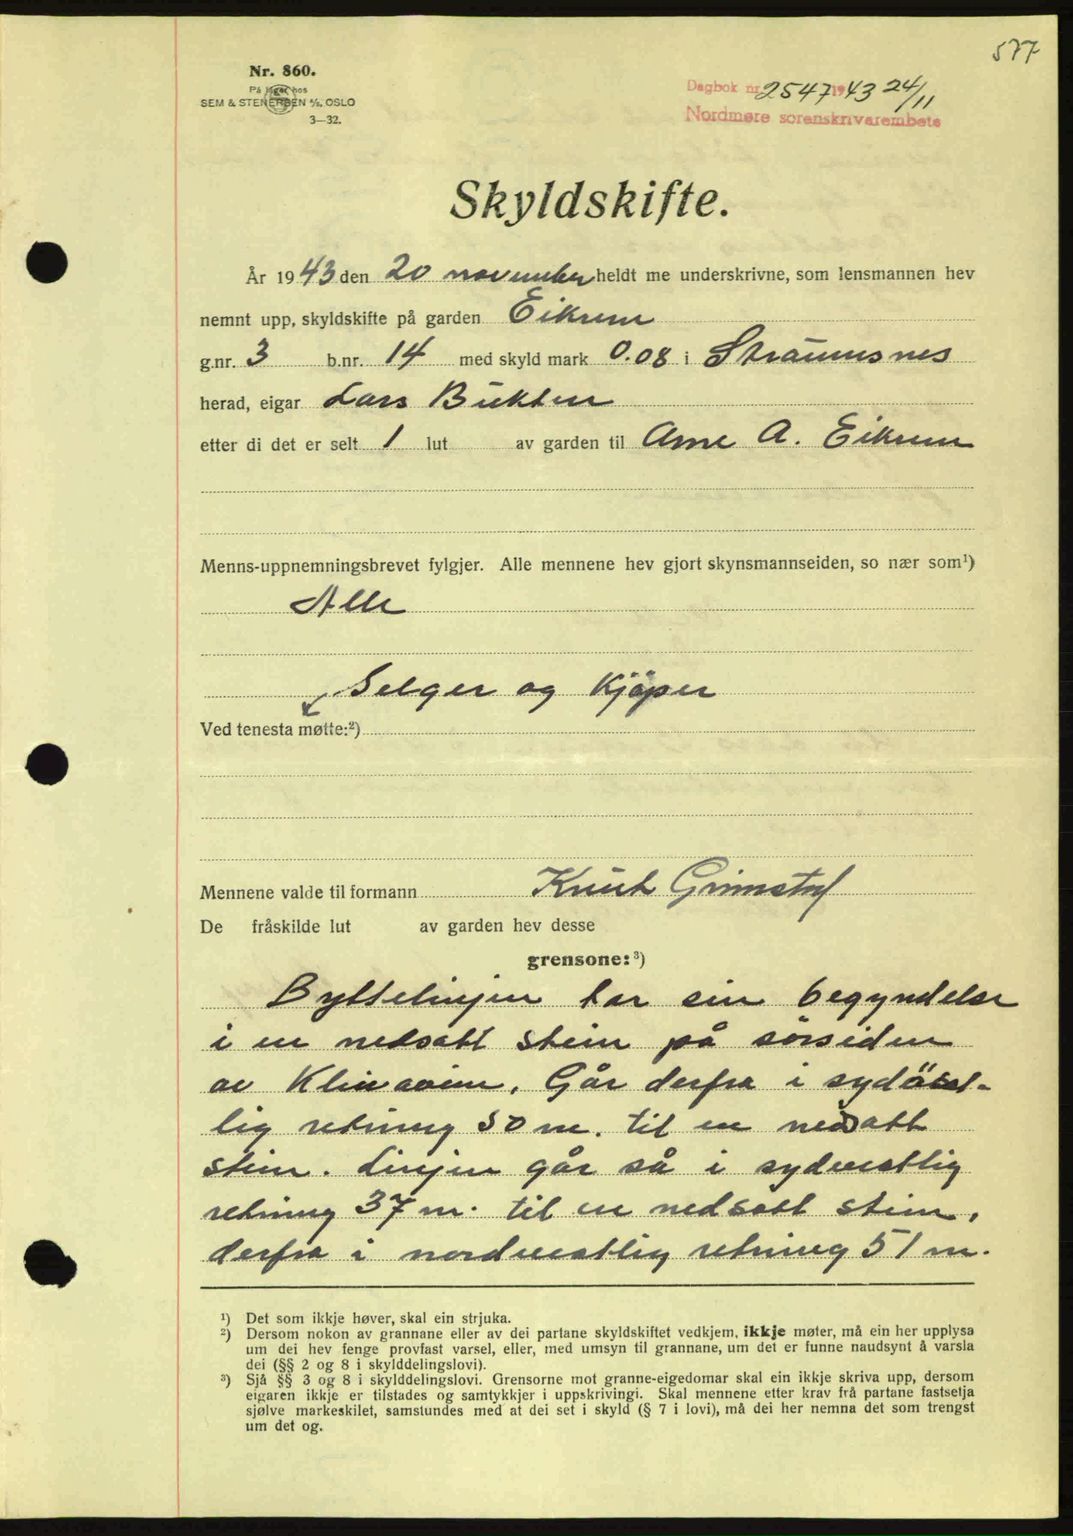 577
Nr. 860.
På lager hos
SEM & STENERSEN A/S, OSLO
3—32.
Dagbok nr. 2547 1943 24/11
Nordmøre sorenskrivarembete
Skyldskifte.
År 1943 den 20 november heldt me underskrivne, som lensmannen hev
nemnt upp, skyldskifte på garden Eikrem
g.nr. 3 b.nr. 14 med skyld mark 0.08 i Straumsnes
herad, eigar Lars Bukten
etter di det er selt 1 lut av garden til Arne A. Eikrem
Menns-uppnemningsbrevet fylgjer. Alle mennene hev gjort skynsmannseiden, so nær som¹)
Alle
Selger og Kjöper
Ved tenesta møtte:²)
Mennene valde til formann Knut Grimstad
De fråskilde lut av garden hev desse
grensone:³)
Byttelinjen tar sin begyndelse
i en nedsatt stein på sörsiden
av. Går derfra i sydöst-
lig retning 50 m. til en nedsatt
stein. Linjen går så i sydvestlig
retning 37 m. til en nedsatt stein,
derfra i nordvestlig retning 51 m.
¹) Det som ikkje høver, skal ein strjuka.
²) Dersom nokon av grannane eller av dei partane skyldskiftet vedkjem, ikkje møter, må ein her upplysa
um dei hev fenge provfast varsel, eller, med umsyn til grannane, um det er funne naudsynt å varsla
dei (§§ 2 og 8 i skylddelingslovi).
³) Sjå §§ 3 og 8 i skylddelingslovi. Grensorne mot granne-eigedomar skal ein ikkje skriva upp, dersom
eigaren ikkje er tilstades og samtykkjer i uppskrivingi. Skal mennene etter krav frå partane fastsetja
sjølve markeskilet, samstundes med at dei set i skyld (§ 7 i lovi), må dei her nemna det som trengst
um det og.